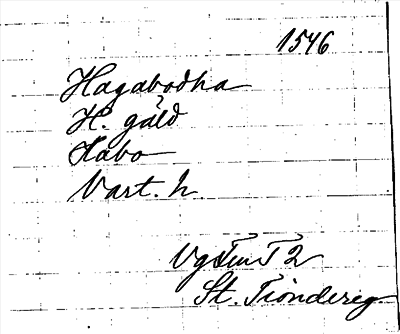 1546
Hagabodha
H. gäld
Habo
Vart. h
Vg Tiu T 2
St. Tiondereg.